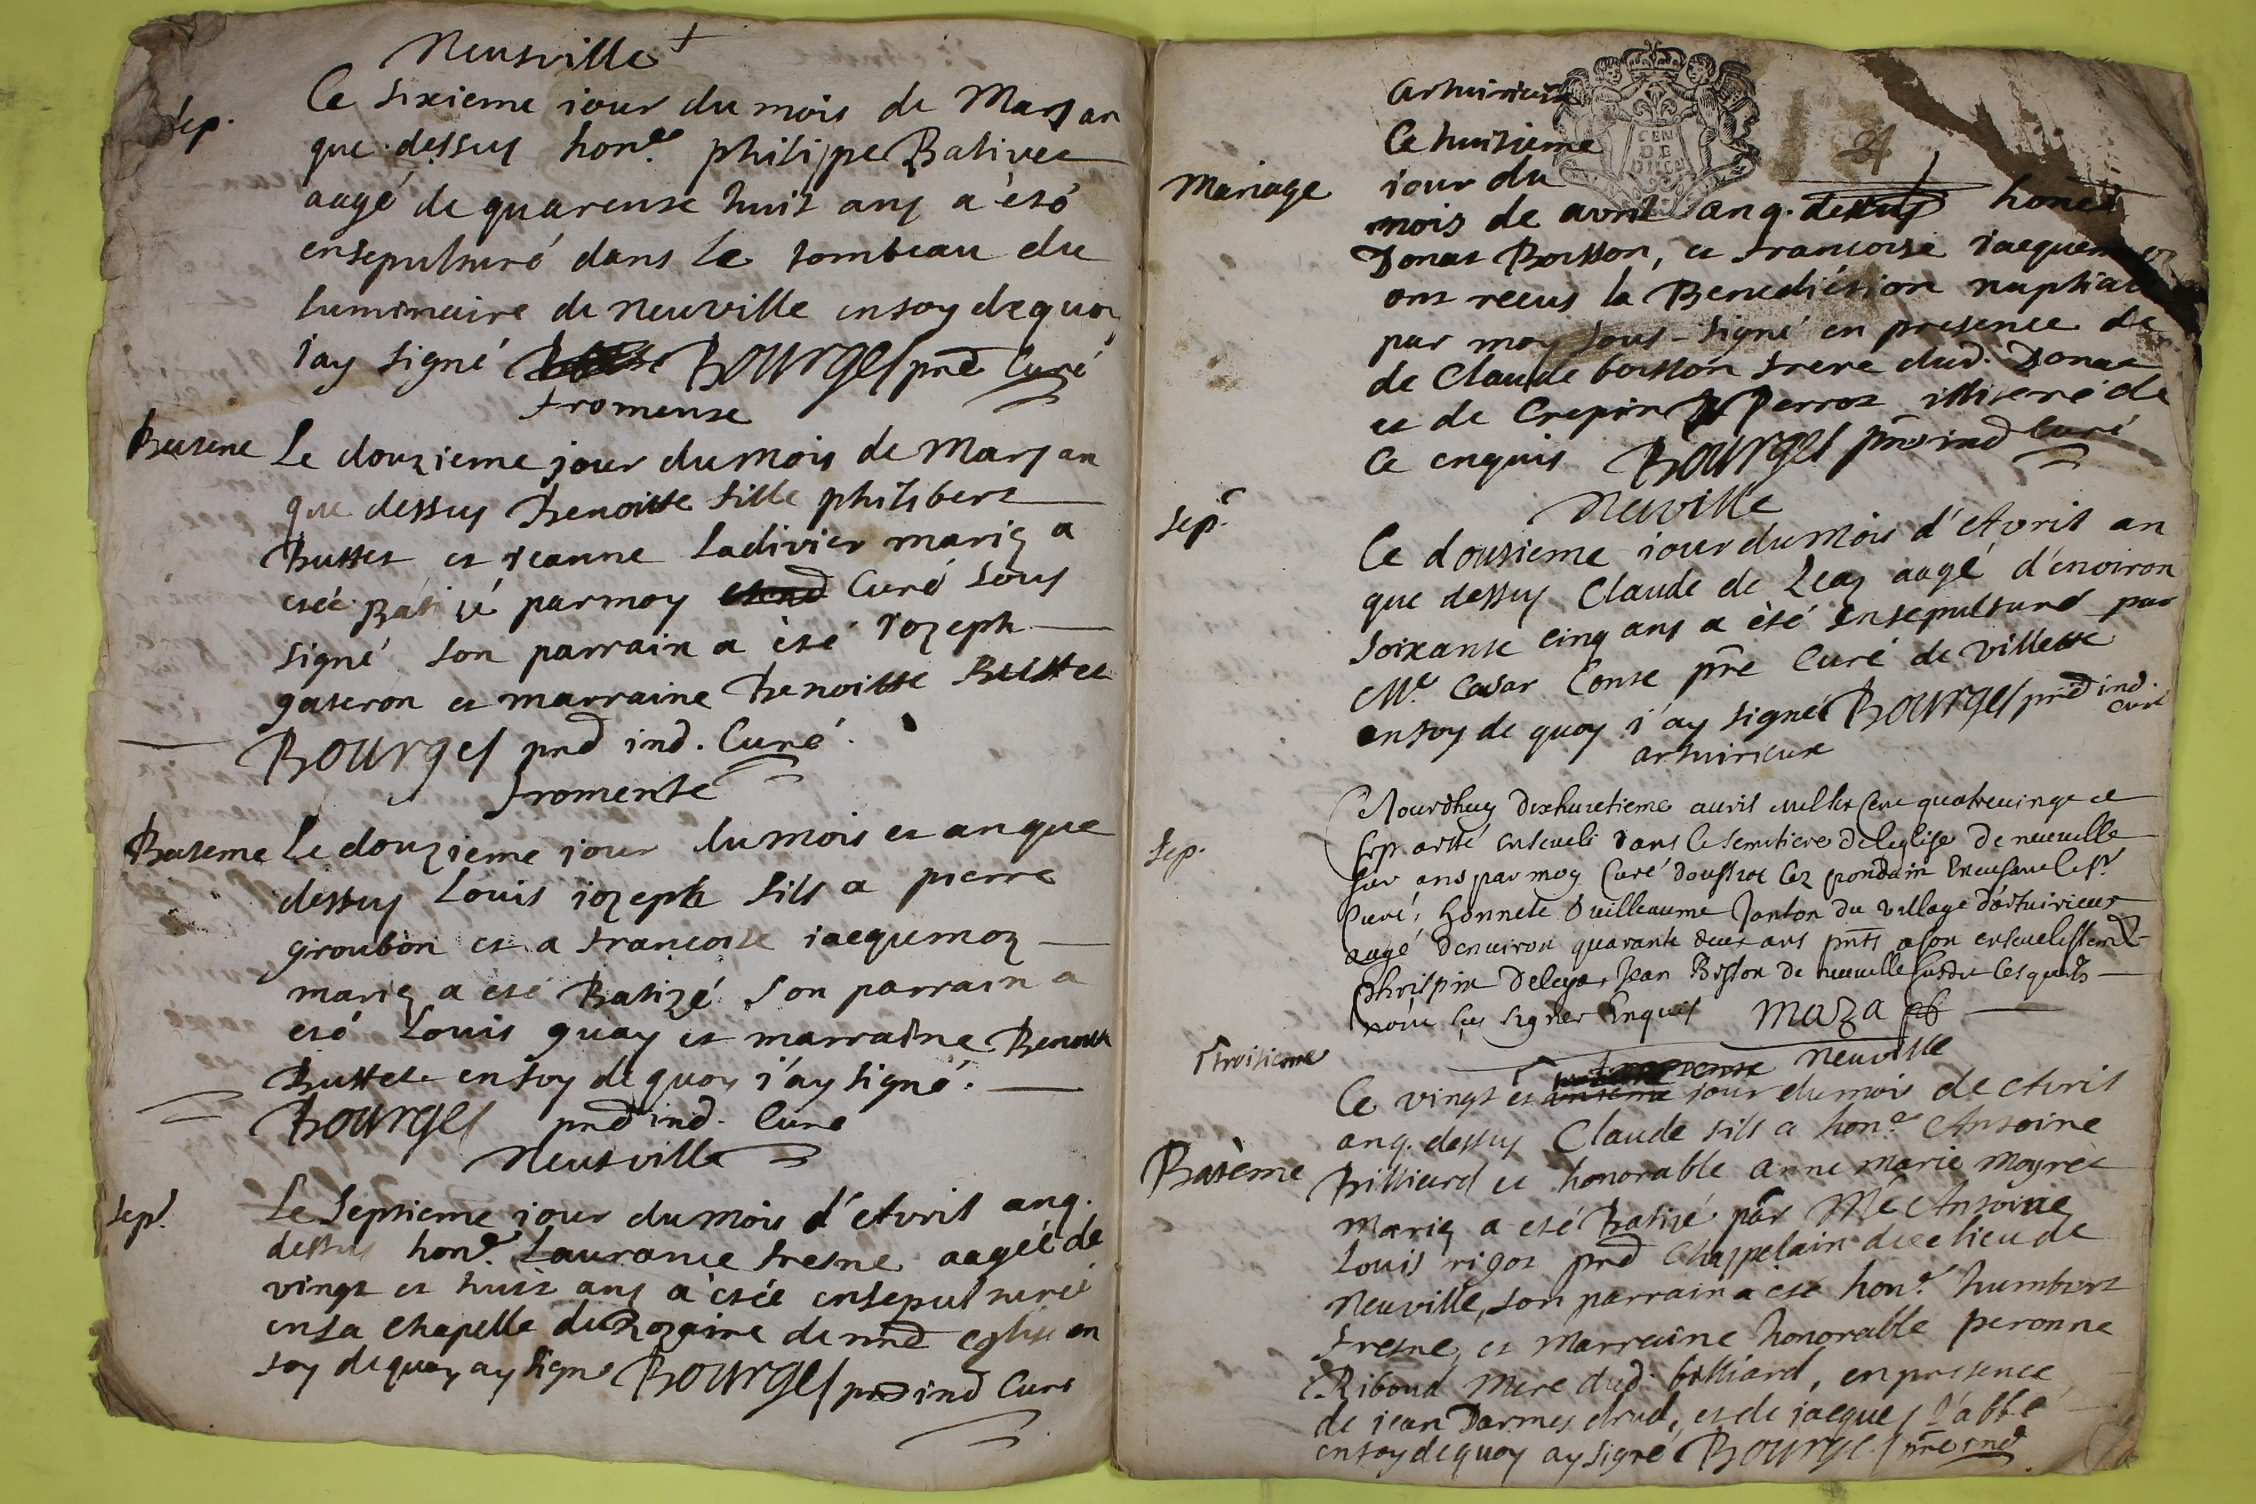 Neufville
Sep.
Ce sixieme iour du mois de Mars an
que dessus hon.e philippe Bativet
aagé de quarente huit ans a èté
ensepulturé dans le tombeau du
luminaire de neuville en foy de quoy
i'ay signé Bourges Curé
fromente
Bateme
Le douzieme jour du mois de Mars an
que dessus Benoitte fille philibert
Buttet et ieanne ladivier mariez a
etée Batizé par moy Curé sous
signé son parrain a èté Iozeph
gateron et marraine Benoitte Buttet
Bourges ind. Curé.
fromente
Bateme
Le douzieme iour du mois et an que
dessus Louis iozeph fils a pierre
groubon et a francoise iacquemoz
mariez a eté Batizé son parrain a
eté Louis guay et marraine Benoitte
Buttet en foy de quoy i'ay signé.
Bourges ind. Curé
Neufville
Sep.
Le septieme iour du mois d'Avril anq.
dessus hon.e Laurance fresne aagéé de
vingt et huit ans a etée ensepulturéé
en la chapelle du Rozaire de eglise en
foy de quoy ay signé Bourges ind Curé
arturieux
GEN
DE
mariage
Ce huitieme
iour du
mois de avril anq. dessus
Donat Boisson, et francoise
ont receus la Benediction nuptiale
par moy sous-signé en presence de
de Claude boisson frere dud. Donat
et de Crepin Perrot illiteré de
Ce enquis Bourges ind Curé
Neuville
Sep.
Ce dousieme iour du mois d'Avril an
que dessus Claude de aagé d'environ
soixante cinq ans a èté ensepulturé par
M.e Cesar Conte Curé de villette
en foy de quoy i'ay signé Bourges ind.
Curé
arturieux
Sep.
Ce Jourdhuy dixhuictieme avril mille cent quatrevingt et
sep a esté enseveli dans le semitiere de leglise de neuville
sur ans par moy Curé
Curé, honnete Guilleaume Janton du village d'arturieux
aagé denviron quarante deux ans a son ensevelissemt
Chrispin Jean Bisson de neuville
signer Enquis Maza
troisieme
neuville
Bateme
Ce vingt et iour du mois de Avril
anq. dessus Claude fils a hon.e Antoine
Billiard et honorable anne marie Moyret
mariez a eté Batizé par M.e Antoine
Louis rigot Chappelain de
Neuville, son parrain a eté hon.e humbert
fresne, et marraine honorable peronne
Riboud mere dud. billiard, en presence
de iean Darmes et de iacques
en foy de quoy ay signé Bourges